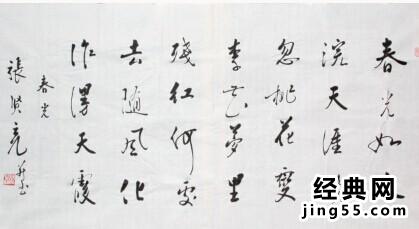 春光如水
浣天涯
忽桃花变
李花梦里
残红何处
去随风化
作漫天霞
春光
張贤亮并书
经典网
jing55.com